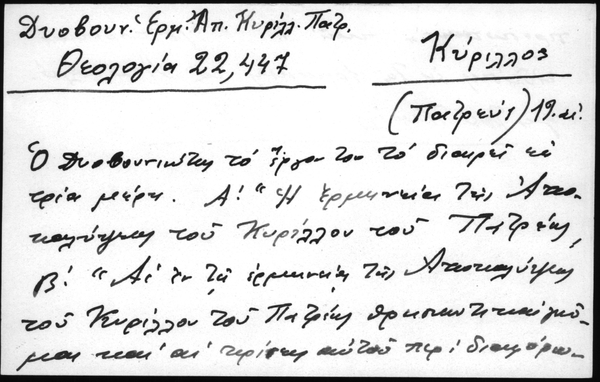 Δυοβουν. Ἑρμ. Ἀπ. Κυρίλλ. Πατρ.
Θεολογία 22,447
Κύριλλος
(Πατρεύς) 19. αἰ.
Ὁ Δυοβουνιώτης τό ἔργον του τό διαιρεῖ εἰς
τρία μέρη. Α! "Ἡ ἑρμηνεία τῆς Ἀπο-
καλύψεως τοῦ Κυρίλλου τοῦ Πατρέως,
β! "Αἱ ἐν τῇ ἑρμηνείᾳ τῆς Ἀποκαλύψεως
τοῦ Κυρίλλου τοῦ Πατρέως θρησκευτικαί γνῶ-
μαι καί αἱ κρίσεις αὐτοῦ περί διαφόρων